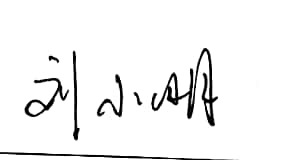 刘小明